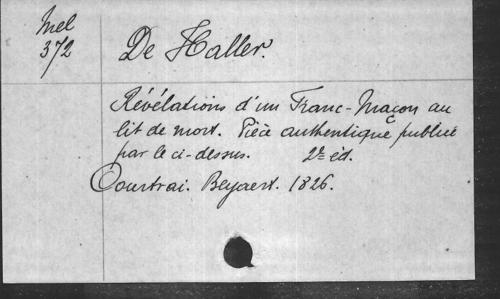 Mel
372
De Haller.
Révélations d'un Franc-Maçon au
lit de mort. Pièce authentique publiée
par le ci-dessus. 2e éd.
Courtrai. Beyaert. 1826.